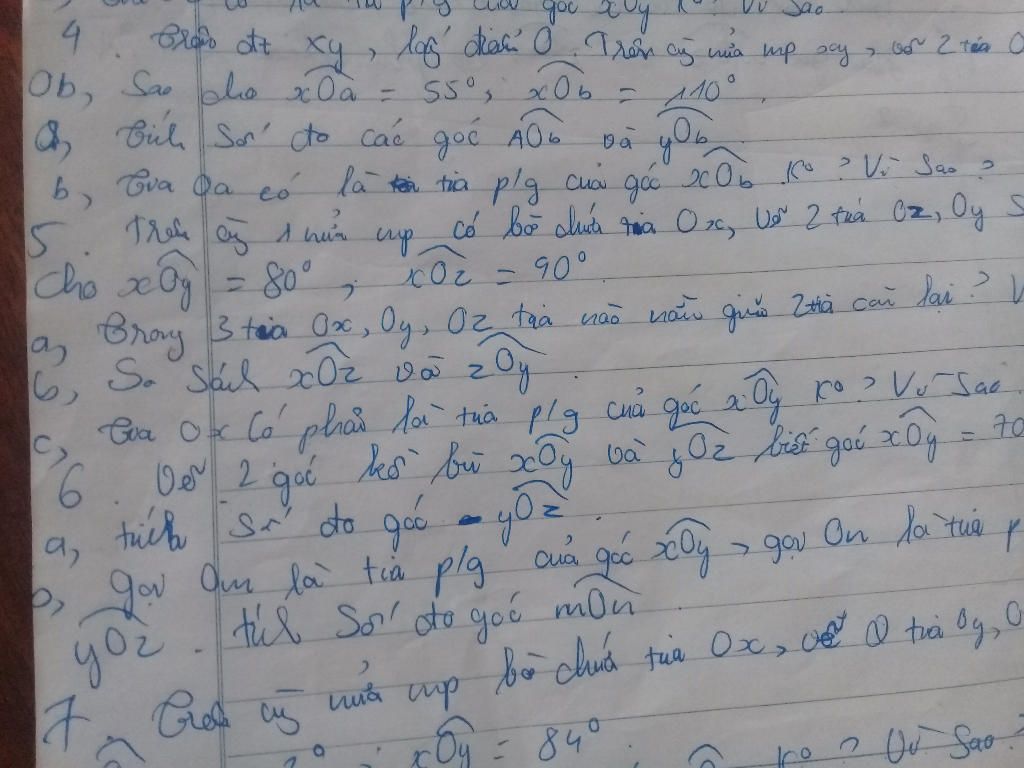 có là tia p/g của góc xOy ko? Vì sao
4. Trên đt xy, lấy điểm O. Trên cg nửa mp xy, vẽ 2 tia O
Ob, Sao cho xOa = 55°; xOb = 110°.
a, tính số đo các góc AOb và yOb
b, tia Oa có là tia p/g của góc xOb ko? Vì Sao?
5. Trên cg 1 nửa mp có bờ chứa tia Ox, vẽ 2 tia Oz, Oy S
Cho xOy = 80°; xOz = 90°
a, trong 3 tia Ox, Oy, Oz tia nào nằm giữa 2 tia còn lại? V
b, So sánh xOz và zOy.
c, tia Ox Có phải là tia p/g của góc xOy ko? Vì Sao
6. Vẽ 2 góc kề bù xOy và yOz biết góc xOy = 70
a, tính số đo góc yOz.
b, gọi Om là tia p/g của góc xOy, gọi On là tia p
yOz. tính Số đo góc mOn.
7. Trên cg nửa mp bờ chứa tia Ox, vẽ tia Oy, O
xOy = 84° ko? Vì Sao?